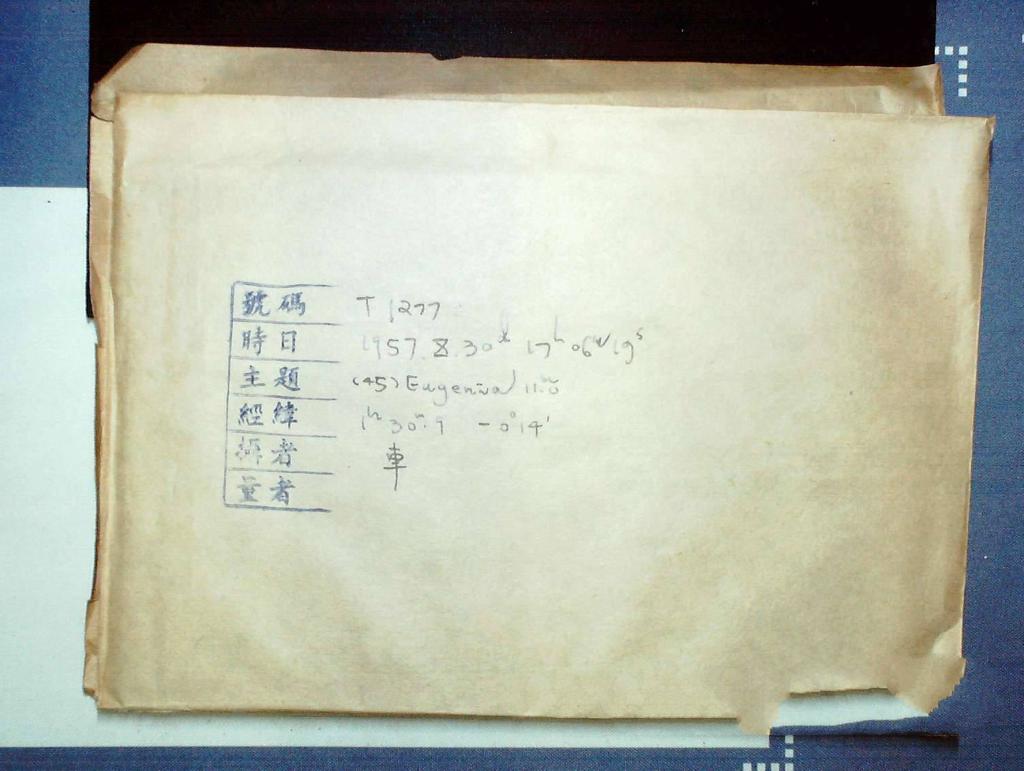 號碼 T 1277
時日 1957.8.30ᵈ 17ʰ06ᵐ19ˢ
主題 (45) Eugenia 11.ᵐ0
經緯 1ʰ30ᵐ.9 -0°14'
攝者 車
量者